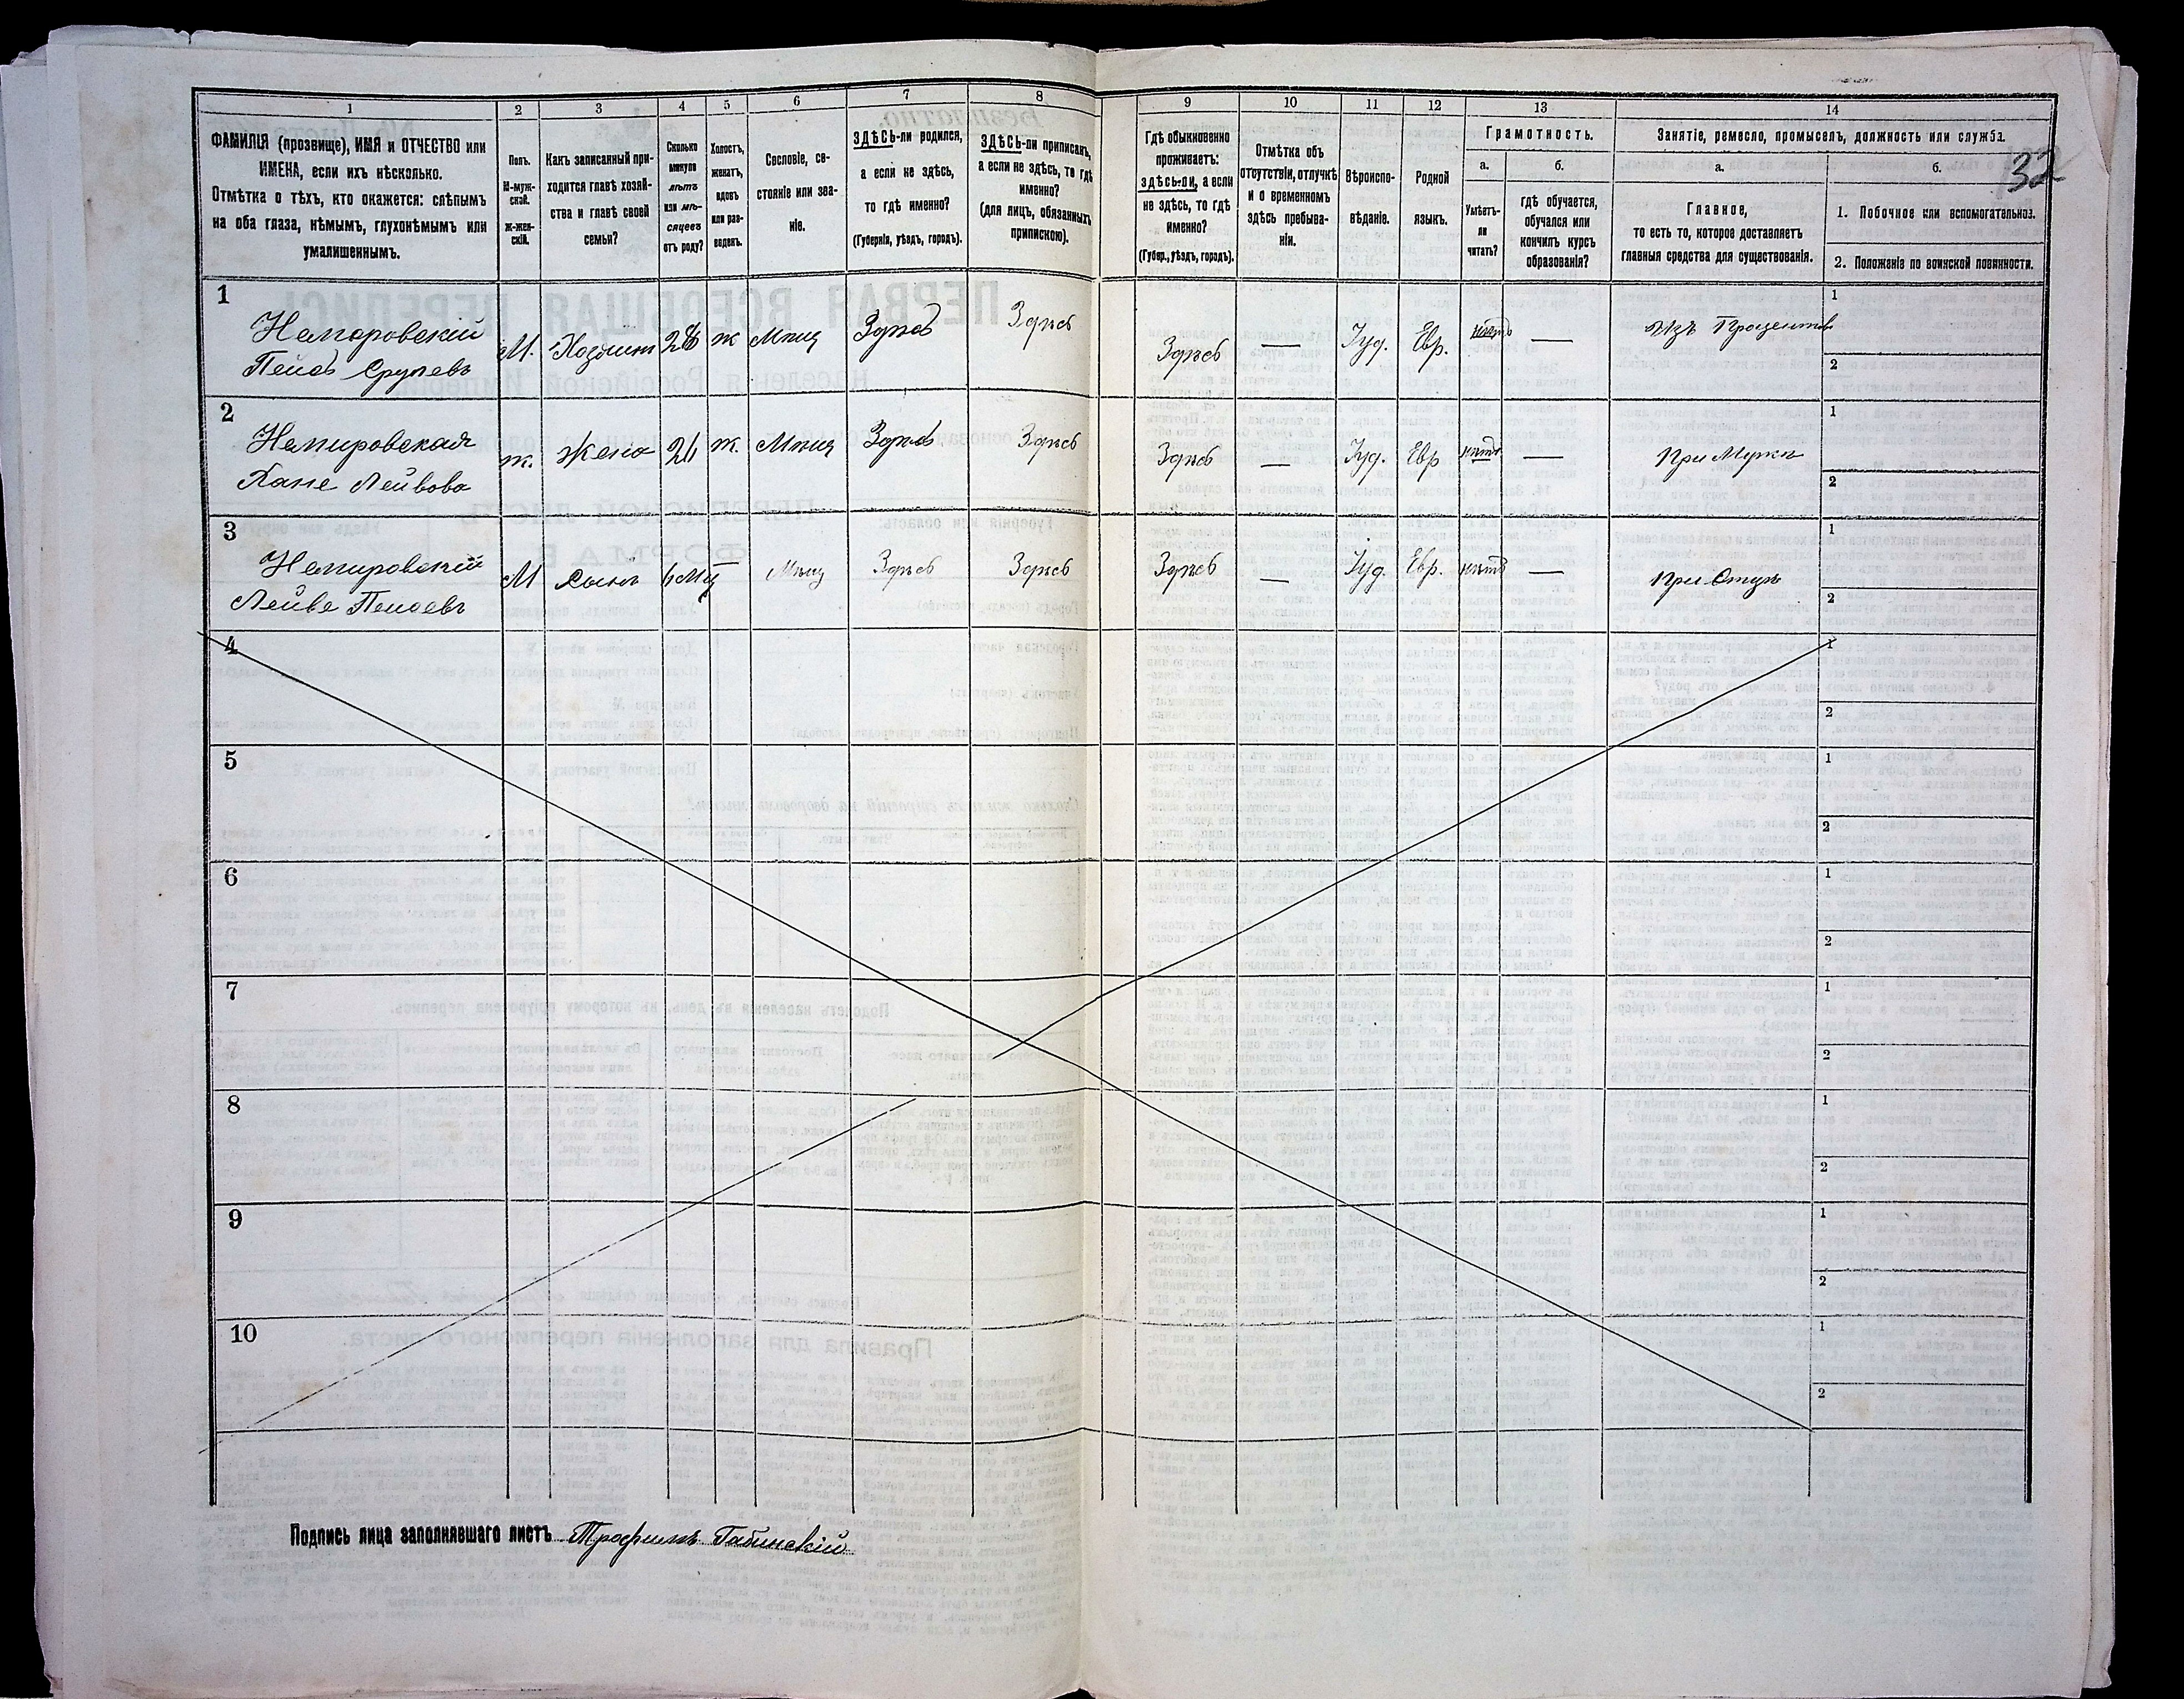 1 2 3 4 5 6 7 8 9 10 11 12 13 14
ФАМИЛІЯ (прозвище), ИМЯ и ОТЧЕСТВО или
ИМЕНА, если ихъ нѣсколько.
Отмѣтка о тѣхъ, кто окажется: слѣпымъ
на оба глаза, нѣмымъ, глухонѣмымъ или
умалишеннымъ.
Полъ.
М-муж-
ской.
ж-жен-
скій.
Какъ записанный при-
ходится главѣ хозяй-
ства и главѣ своей
семьи?
Сколько
минуло
лѣтъ
или мѣ-
сяцевъ
отъ роду?
Холостъ,
женатъ,
вдовъ
или раз-
веденъ.
Сословіе, со-
стояніе или зва-
ніе.
ЗДѢСЬ-ли родился,
а если не здѣсь,
то гдѣ именно?
(Губернія, уѣздъ, городъ).
ЗДѢСЬ-ли приписанъ,
а если не здѣсь, то гдѣ
именно?
(для лицъ, обязанныхъ
припискою).
Гдѣ обыкновенно
проживаетъ:
здѣсь-ли, а если
не здѣсь, то гдѣ
именно?
(Губер., уѣздъ, городъ).
Отмѣтка объ
отсутствіи, отлучкѣ
и о временномъ
здѣсь пребыва-
ніи.
Вѣроиспо-
вѣданіе.
Родной
языкъ.
Грамотность.
а.
Умѣетъ-
ли
читать?
б.
гдѣ обучается,
обучался или
кончилъ курсъ
образованія?
Занятіе, ремесло, промыселъ, должность или служба.
а.
Главное,
то есть то, которое доставляетъ
главныя средства для существованія.
б.
32
1. Побочное или вспомогательное.
2. Положеніе по воинской повинности.
1
Немировскій
Пейсъ Срулевъ
М. Хозяинъ 28 ж Мѣщ Здѣсь Здѣсь Здѣсь — Іуд. Евр. нѣтъ — Изъ Процентовъ
1
2
2
Немировская
Хане Лейвова
ж. Жена 21 ж. Мѣщ Здѣсь Здѣсь Здѣсь — Іуд. Евр нѣтъ — При Мужѣ
1
2
3
Немировскій
Лейве Пейсевъ
М Сынъ 6 Мц — Мѣщ Здѣсь Здѣсь Здѣсь — Іуд. Евр. нѣтъ — При Отцѣ
1
2
4
1
2
5
1
2
6
1
2
7
1
2
8
1
2
9
1
2
10
1
2
Подпись лица заполнявшаго листъ Трофимъ Габинскій